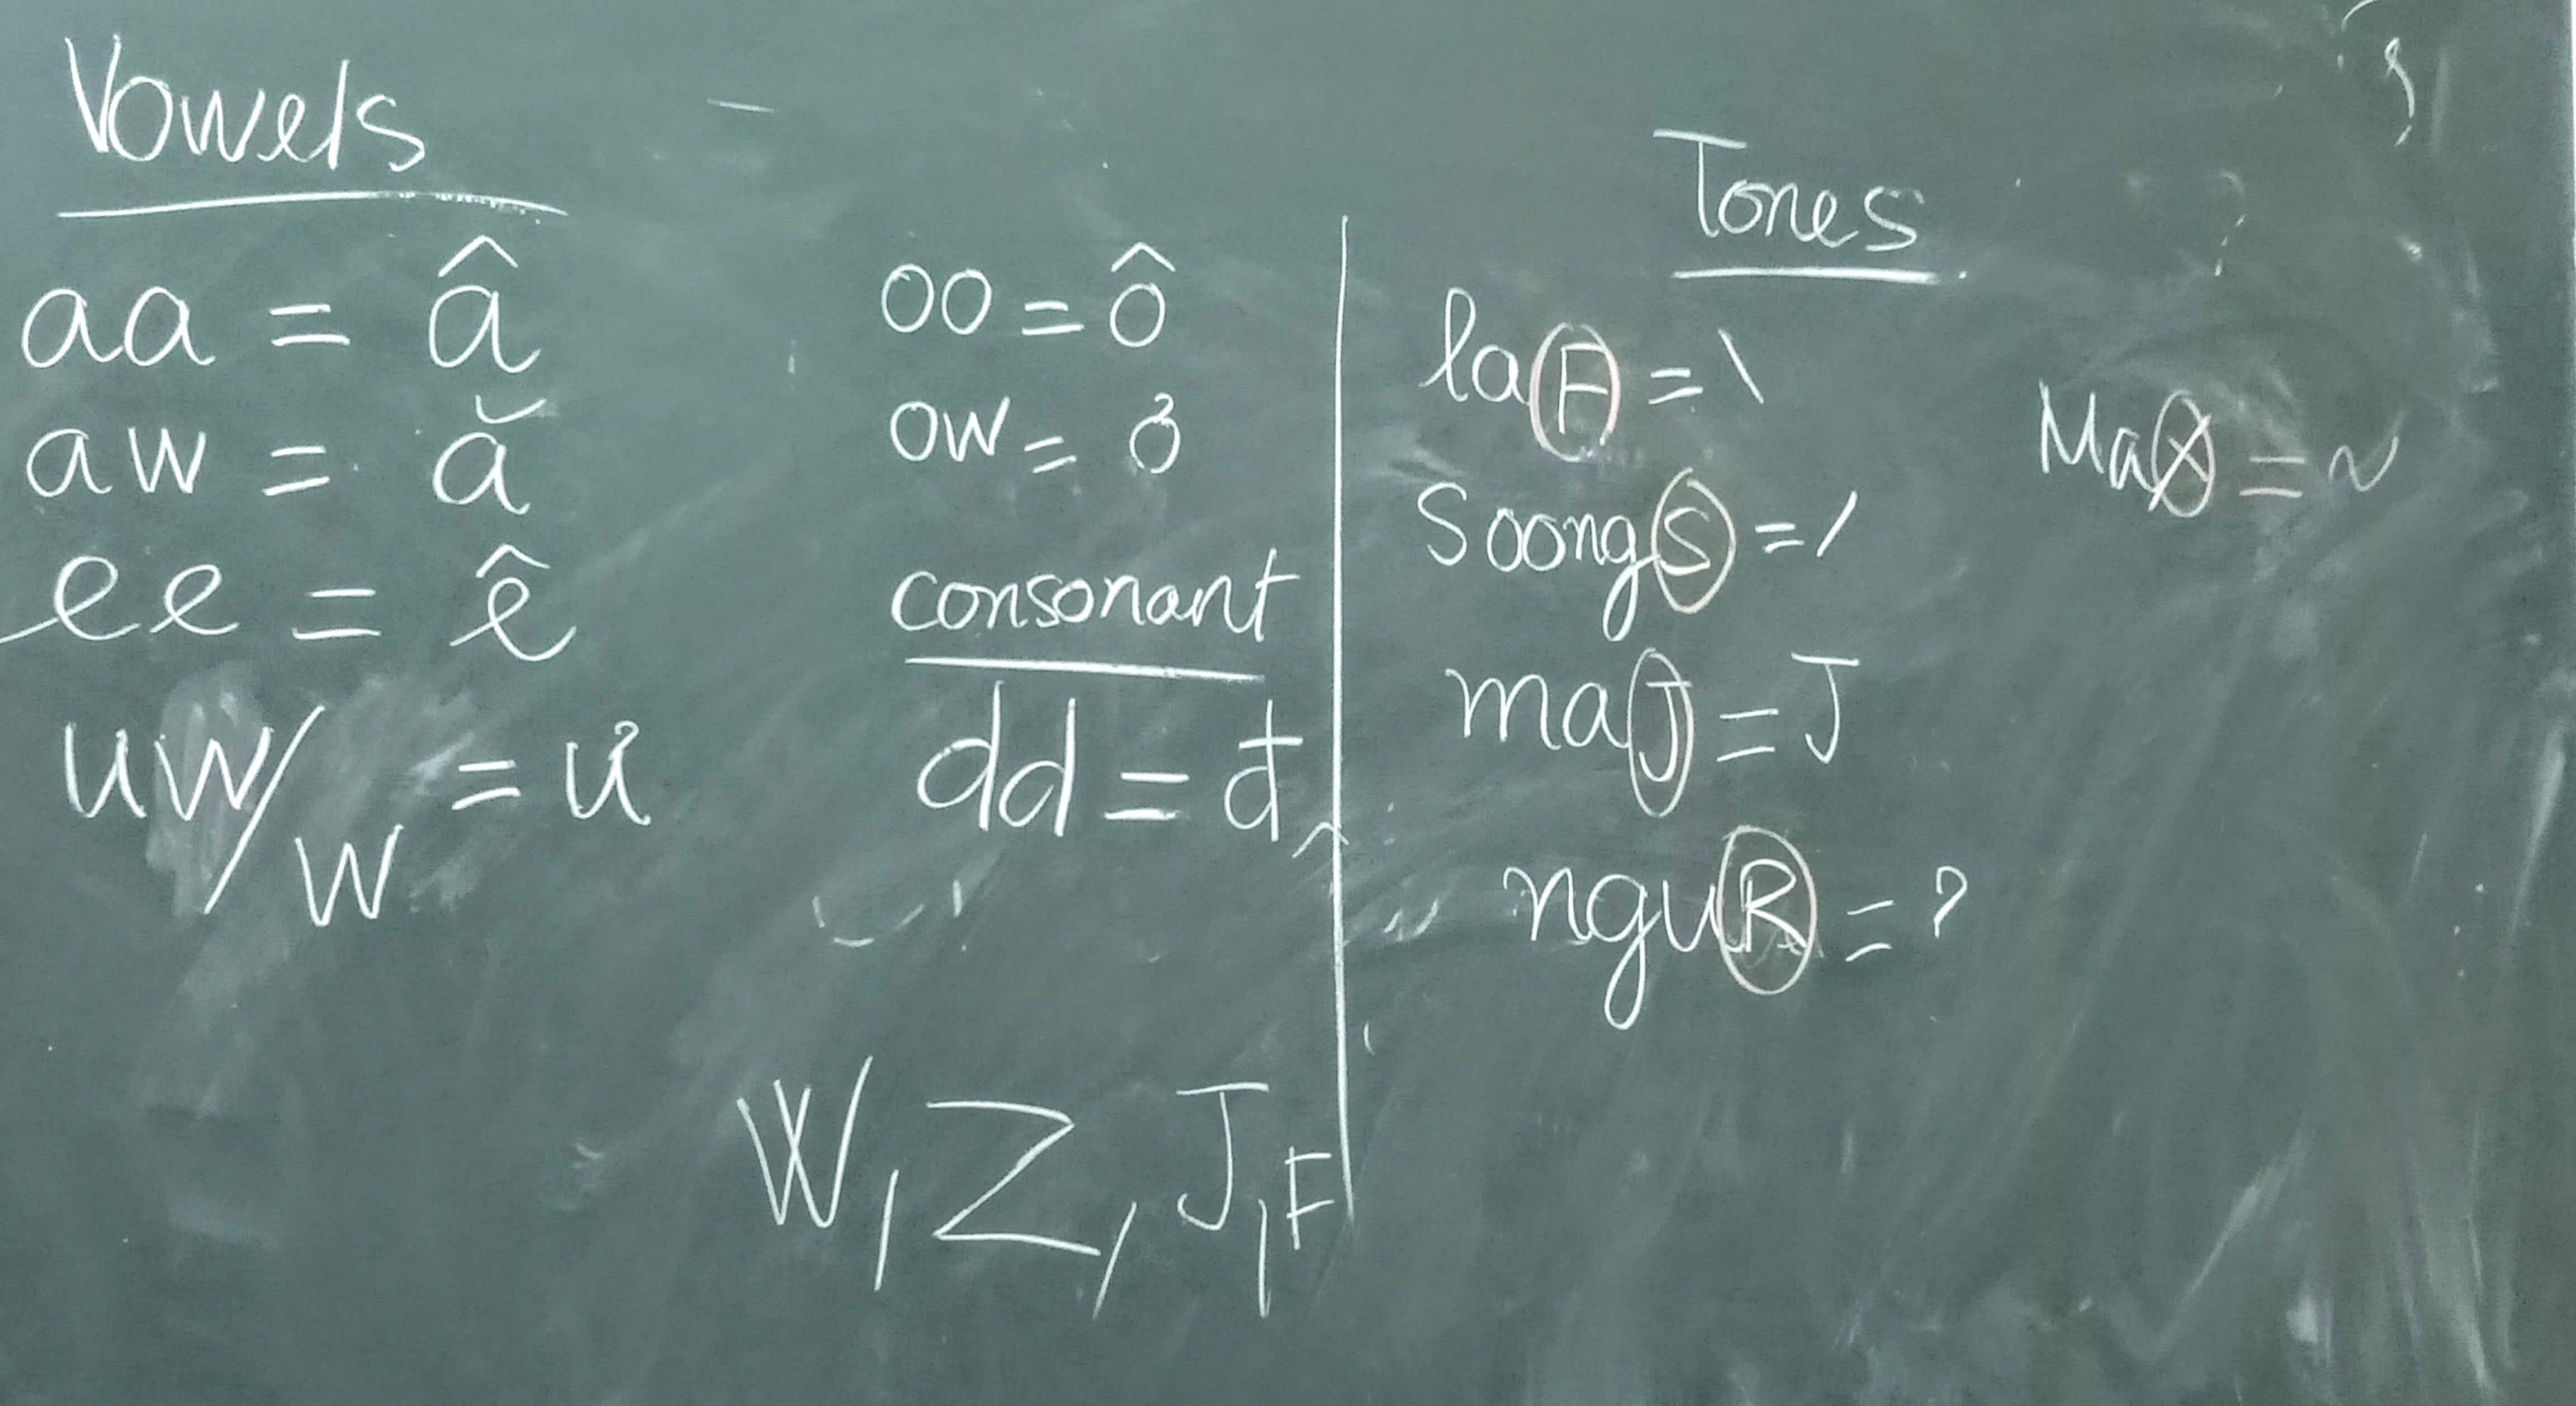 Vowels
aa = â
aw = ă
ee = ê
uw/w = ư
oo = ô
ow = ơ
consonant
dd = đ
W, Z, J, F
Tones
laF = \
SoongS = /
maJ = J
nguR = ?
MaX = ~